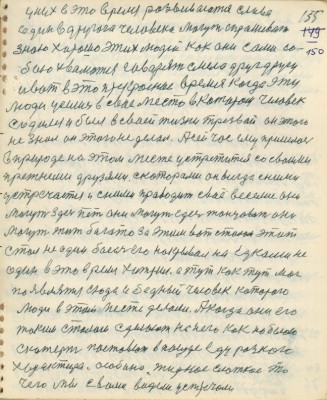 у них в это время развивается слава 155
один в другого человека могут спрашивать 149
знаю хорошо этих людей как они сами со- 150
бою хвалятся говорят смело друг другу
и вот в это прекрасное время когда эти
люди целиц в своё место в котором человек
сходился и был в своей жизни трезвой он этого
не знал он этого не делал. А сейчас ему пришлось
в природе на этом месте устретится со своими
прежними друзьями, с которыми он всегда с ними
устречается и с ними проводит своё веселие они
могут здесь пет они могут здесь танцовать они
могут
за этим вот столом этот
стол не один богач его накрывал на
не
один в это время хитрил. а тут как тут мог
появлятся сюда и бедный человек которого
люди в этом месте делали. А когда они его
таким столом сделают на него как на белою
скатерть поставят в посуде еду разного
характира, особино жирное сладкое то
чего мы с вами видем